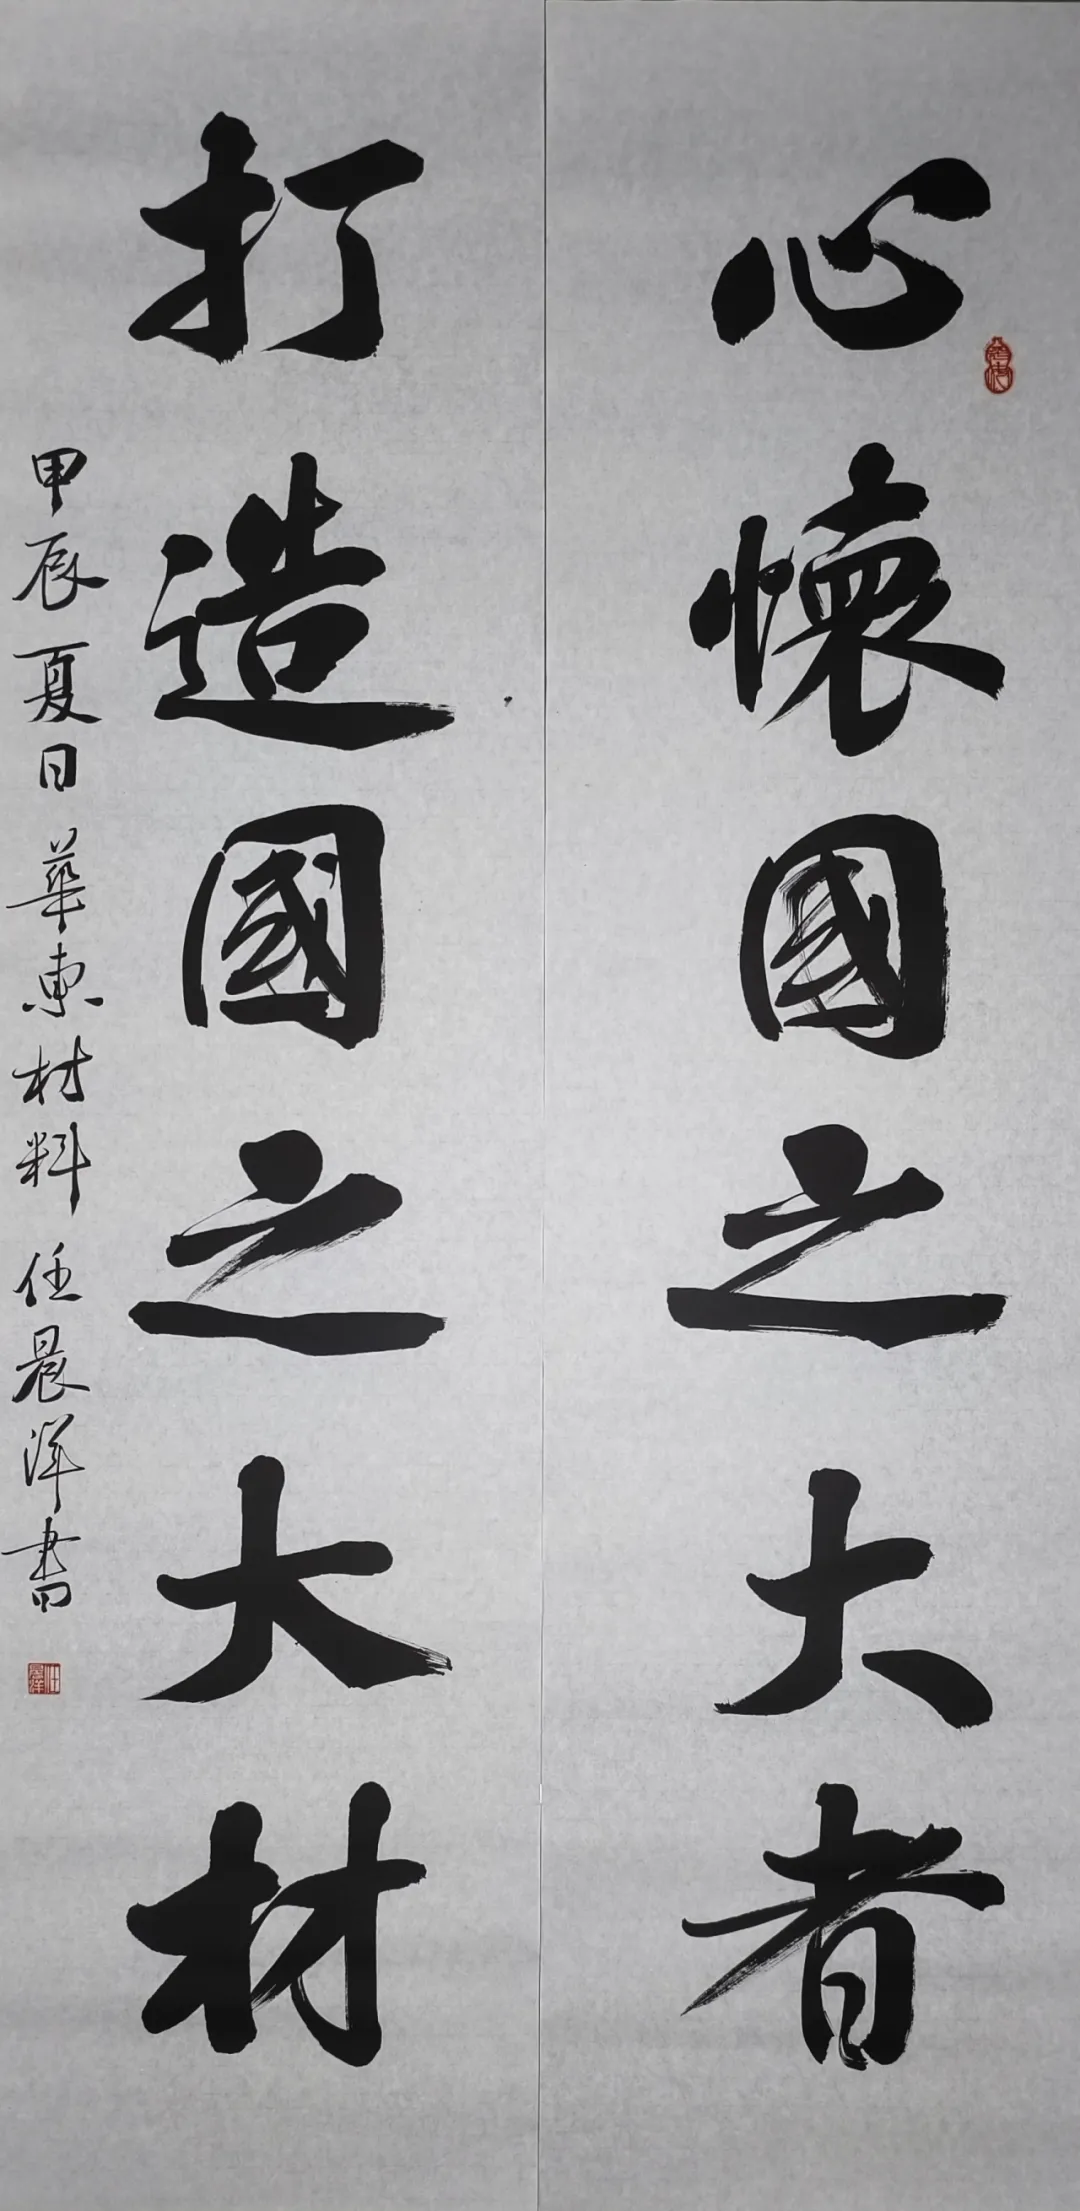 心懷國之大者
打造國之大材
甲辰夏日華東材料任晨洋書